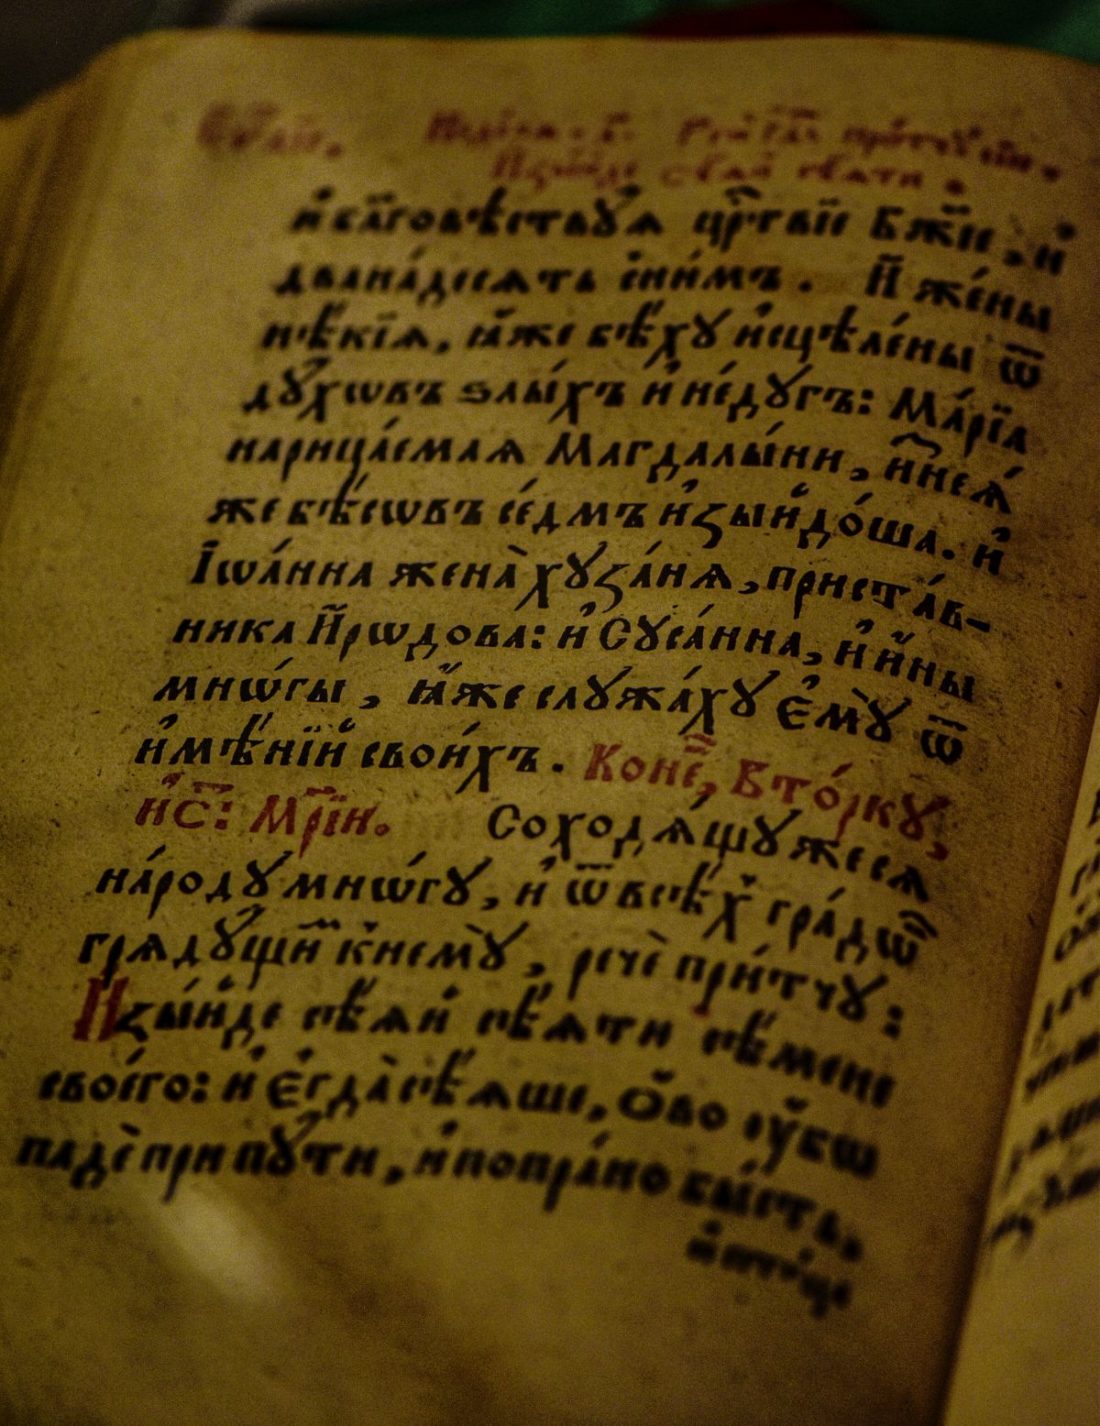 и҆ бл҃говѣствꙋѧ црⷭ҇твїе Бж҃їе, и҆
дванáдесѧть с̾ни́мъ. И҆ же́ны
нѣ́кїѧ, ꙗ҆́же бѣ́хꙋ и҆сцѣле́ны ѿ
дꙋ́хѡвъ ѕлы́хъ и҆ не́дꙋгъ: Ма́рїа
нарица́емаѧ Магдалы́ни, и҆ꙁ̾неѧ́
же бѣ́сѡвъ се́дмъ и҆ꙁы́дóша. и҆
І҆ѡа́нна жена̀ хꙋꙁа́нѧ, приста́в-
ника И҆́рѡдова: и҆ Сꙋса́нна, и҆ и҆́ны
мнѡ́гы, ꙗ҆́же слꙋжа́хꙋ є҆мꙋ̀ ѿ
и҆мѣ́нїи҆ свои́хъ. Коне́ц, Вто́ркꙋ,
и҆ Ст҃: Мр҃їи. Соходѧ́щꙋ же сѧ
наро́дꙋ мнѡ́гꙋ, и҆ ѿ всѣ́х гра́дѡв
грѧдꙋ́щим к̾немꙋ̀, речѐ при́тчꙋ:
И҆ꙁы́йде сѣ́ѧй сѣ́ѧти сѣ́мене
своего̀: и҆ є҆гда̀ сѣ́ѧше, ѻ҆́во ᲂу҆́бѡ
падѐ при пꙋ́ти, и҆ попра́но бы́сть,
и҆ пти́це